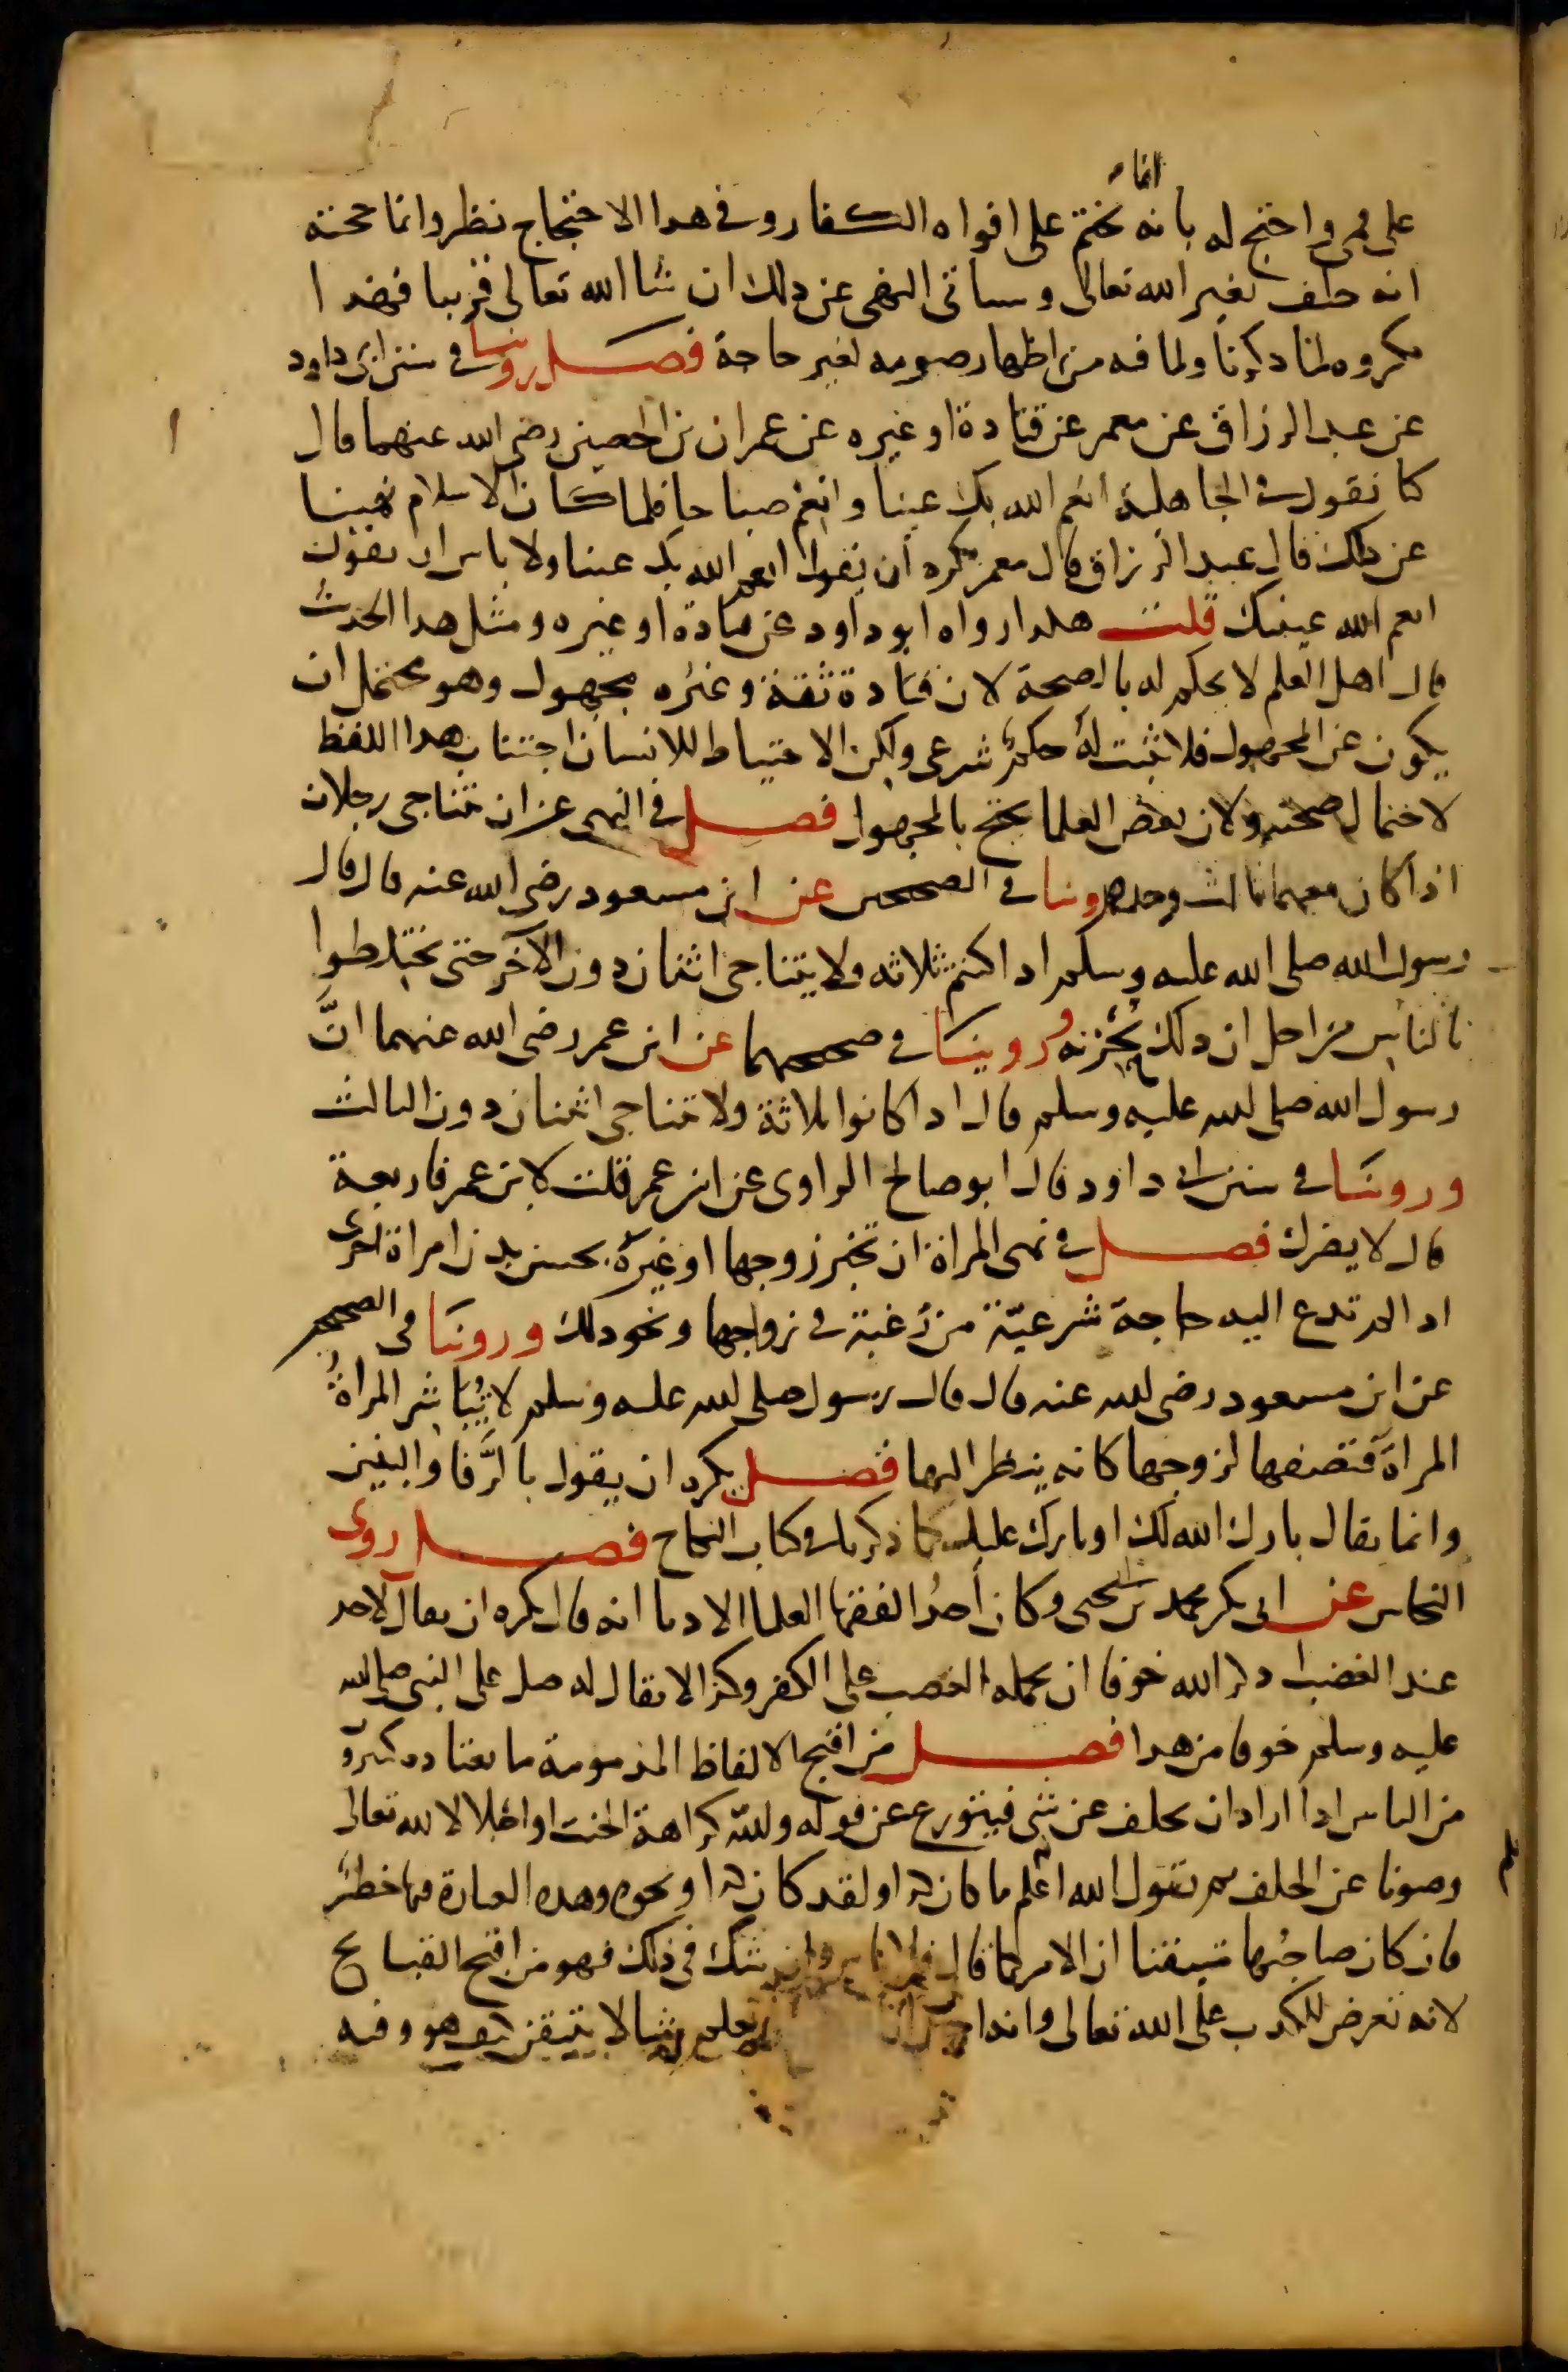 انما
على فمي واحتج له بانه يختم على افواه الكفار وفي هذا الاحتجاج نظر وانما حجته
انه حلف بغير الله تعالى وسياتى النهى عن ذلك ان شا الله تعالى قريبا فهذا
مكروه لما ذكرنا ولما فيه من اظهار صومه لغير حاجة فصل روينا في سنن ابى داود
عن عبد الرزاق عن معمر عن قتادة او غيره عن عمران بن الحصين رضى الله عنهما قال
كنا نقول في الجاهلية انعم الله بك عينا وانعم صباحا فلما كان الاسلام نهينا
عن ذلك قال عبد الرزاق قال معمر يكره ان يقول انعم الله بك عينا ولا باس ان يقول
انعم الله عينك قلت هكذا رواه ابو داود عن قتادة او غيره ومثل هذا الحديث
قال اهل العلم لا يحكم له بالصحة لان قتادة ثقة وغيره مجهول وهو محتمل ان
يكون عن المجهول فلا يثبت له حكم شرعى ولكن الاحتياط للانسان اجتناب هذا اللفظ
لاحتمال صحته ولان بعض العلما يحتج بالمجهول فصل في النهى عن ان يتناجى رجلان
اذا كان معهما ثالث وحده روينا في الصحيحين عن ابن مسعود رضى الله عنه قال قال
رسول الله صلى الله عليه وسلم اذا كنتم ثلاثه ولا يتناجى اثنان دون الآخر حتى تختلطوا
بالناس من اجل ان ذلك يحزنه وروينا في صحيحهما عن ابن عمر رضى الله عنهما انّ
رسول الله صلى الله عليه وسلم قال اذا كانوا ثلاثة ولا يتناجى اثنان دون الثالث
وروينا في سنن ابى داود قال ابو صالح الراوى عن ابن عمر قلت لابن عمر فاربعة
قال لا يضرك فصل في نهى المراة ان تخبر زوجها او غيره بحسن بدن امراة اخرى
اذا لم تدع اليه حاجة شرعيّة من رغبة في زواجها ونحو ذلك وروينا في الصحيحين
عن ابن مسعود رضى الله عنه قال قال رسول صلى الله عليه وسلم لا تُبَاشر المراةُ
المراةَ فتصفها لزوجها كانه ينظر اليها فصل يكره ان يقول بالرَّفا والبنين
وانما يقال بارك الله لك او بارك عليك كما ذكرناه في كتاب النكاح فصل روى
النحاس عن ابى بكر محمد بن يحيى وكان أحدُ الفقها العلما الادبا انه قال يكره ان يقال لاحد
عند الغضب اذكر الله خوفا ان يحمله الغضب على الكفر وكذا لا يقال له صل على النبى صلى الله
عليه وسلم خوفا من هذا فصل من اقبح الالفاظ المذمومة ما يعتاده كثيرون
من الناس اذا اراد ان يحلف عن شى فيتورع عن قوله والله كراهة الحنث او اجلالا لله تعالى
وصونا عن الحلف ثم يقول الله اعلم ما كان كذا او لقد كان كذا ونحوه وهذه العبارة فيها خطرٌ
فان كان صاحبُها متيقنا ان الامر كما قال فلا باس وان شك في ذلك فهو من اقبح القبايح
لانه تعرض للكذب على الله تعالى وانه اخبر ان يعلم شيا لا يتيقن كيف هو وفيه